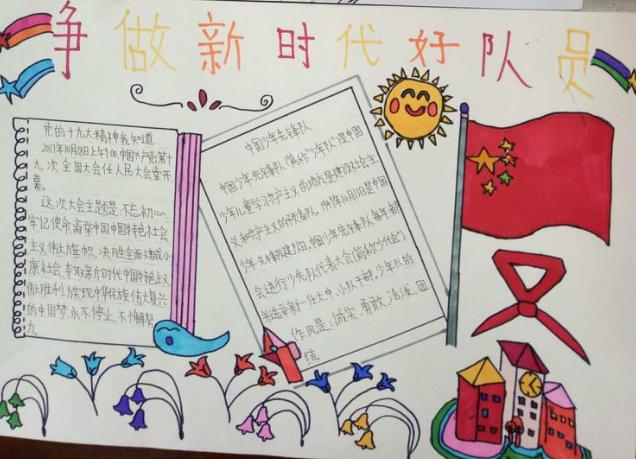 争做新时代好队员
党的十九大精神我知道
2017年10月18日上午9:00,中国共产党第十
九次全国大会在人民大会堂开
幕。
这次大会主题是:不忘初心,
牢记使命,高举中国特色社会
主义伟大旗帜,决胜全面建成小
康社会,夺取新时代中国特色主义
伟大胜利,为实现中华民族伟大复兴
的中国梦,永不停止,不懈努
力。
中国少年先锋队
中国少年先锋队(简称"少年队")是中国
少年儿童学习共产主义的地方,是建设社会主
义和共产主义的预备队,1949年10月13日是中国
少年先锋队建队日。中国少年先锋队每年都
会进行少先队代表大会(简称少代会)
并选举新一任大中、小队干部,少年队的
作风是:诚实、勇敢、活泼、团
结。